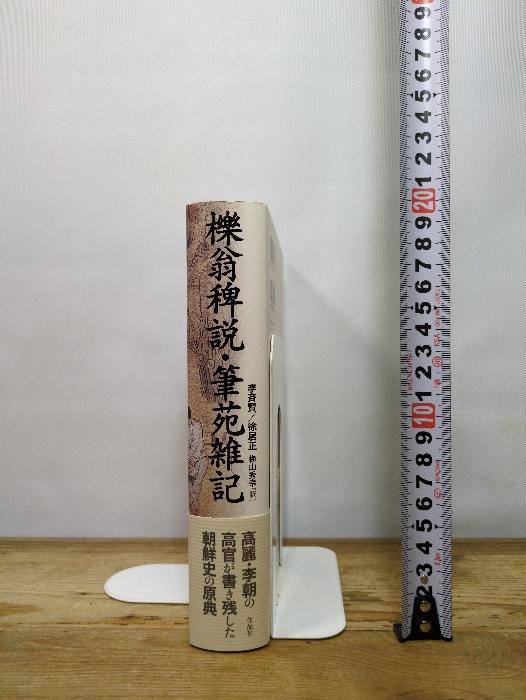 櫟翁稗説・筆苑雑記
李斉賢/徐居正
梅山秀幸[訳]
高麗・李朝の
高官が書き残した
朝鮮史の原典
作品社
9
8
7
6
5
4
3
2
1
20
9
8
7
6
5
4
3
2
1
10
9
8
7
6
5
4
3
2